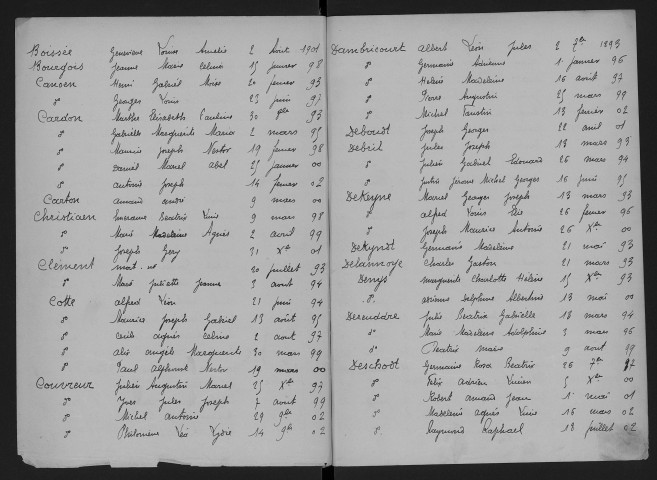 Boissée Geneviève Louise Amélie 2 Août 1901
Bourgois Jeanne Marie Celina 15 janvier 98
Cansen Henri Gabriel Moïse 20 février 95
do Georges Louis 23 juin 97
Cardon Marthe Elisabeth Pauline 30 9bre 93
do Gabrielle Marguerite Maria 2 mars 95
do Maurice Joseph Nestor 19 février 98
do Daniel Marcel Abel 25 janvier 00
do Antoine Joseph 14 février 02
Carton Amand André 9 mars 00
Christiaen Beatrix 9 mars 98
do Marie Madeleine Agnès 2 avril 99
do Joseph Géry 21 Xbre 01
Clément mort-né 20 juillet 93
do Marie Juliette Jeanne 3 août 94
Cotte Alfred Léon 21 juin 94
do Maurice Joseph Gabriel 13 août 95
do Cécile Agnès Celina 2 août 97
do Marguerite 30 mars 99
do Paul Alphonse Nestor 19 mars 00
Couvreur Julien Augustin Marcel 25 Xbre 97
do Yves Jules Joseph 2 août 99
do Michel Antoine 29 9bre 02
do Philomène Léa Lydie 14 9bre 02
Dambricourt Albert Léon Jules 2 7bre 1893
do Germaine 1 janvier 96
do Hélène Madeleine 16 août 97
do Pierre Augustin 25 mars 99
do Michel Faustin 13 février 02
Deboudt Joseph Georges 22 avril 01
Debril Jules Joseph 13 mars 93
do Julien Gabriel Edouard 26 mars 94
do Julia Jérôme Michel Georges 16 juin 95
Dekeyne Marcel Georges Joseph 13 mars 93
do Alfred Louis 26 février 96
do Joseph Maurice Antoine 26 Xbre 00
Dekyndt Germaine Madeleine 21 mai 93
Delannoye Charles Gaston 21 mars 93
Denys Marguerite Charlotte Hélène 15 Xbre 93
do Delphine Albertine 13 mai 00
Julia Beatrix Gabrielle 18 mars 94
do Marie Madeleine Adolphine 3 mars 96
do Beatrix Maria 9 août 99
Deschodt Germaine Rosa Beatrix 26 7bre 97
do Félix Adrien 5 Xbre 00
do Robert Amand Jean 1 mai 01
do Madeleine Agnès 16 mars 02
do Raymond Raphaël 18 juillet 02